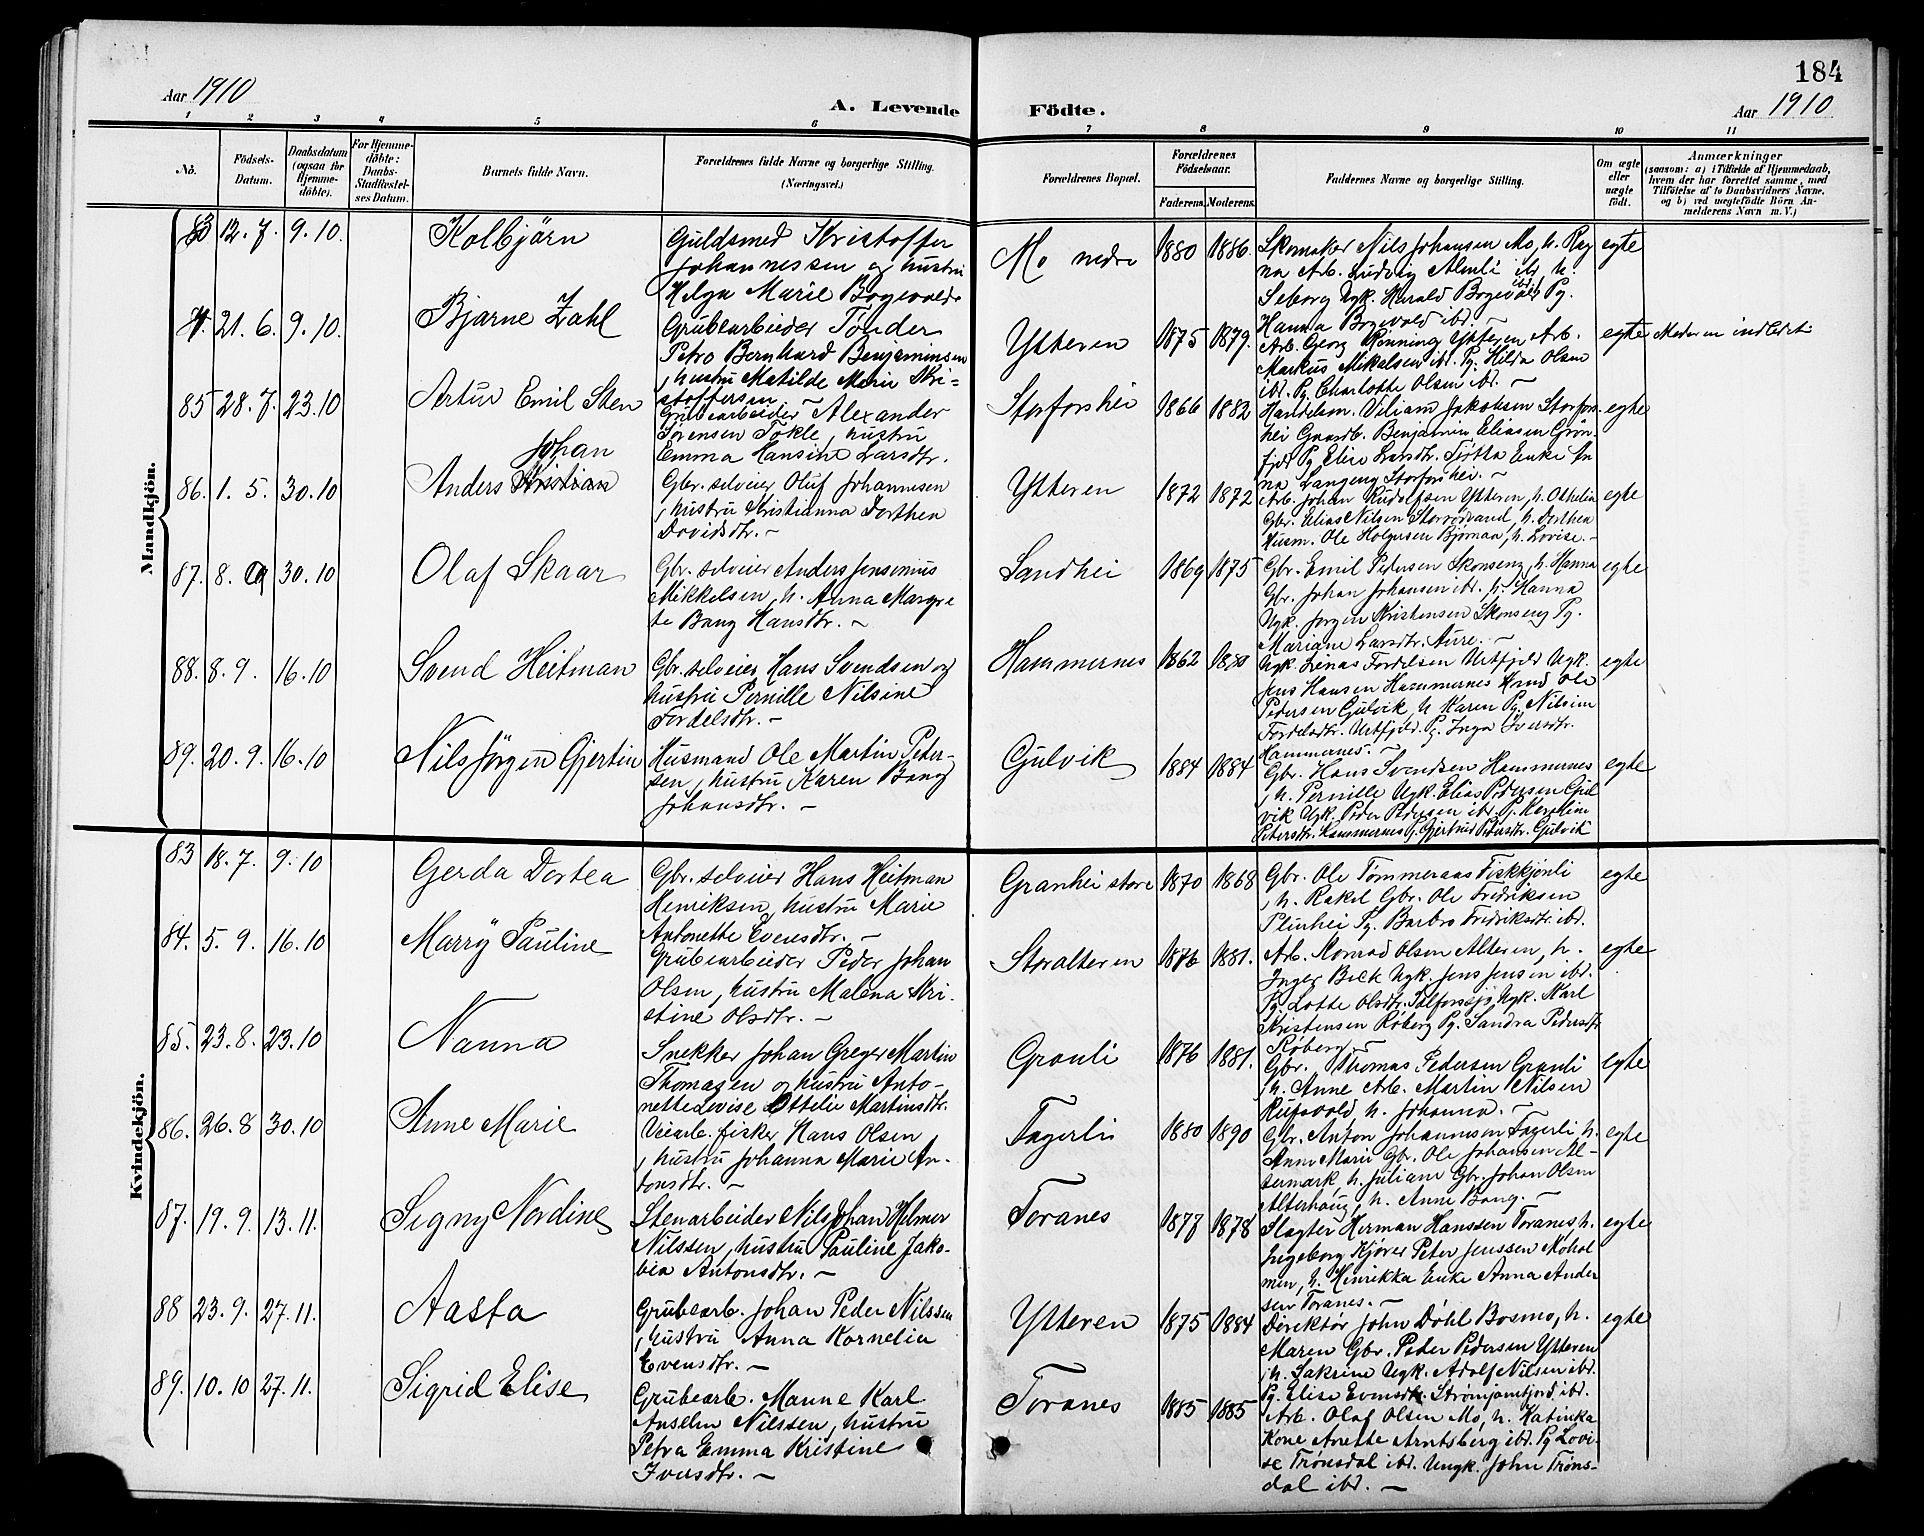 184
Aar 1910
A. Levende Födte.
Aar 1910
1 2 3 4 5 6 7 8 9 10 11
No.
Födsels-
Datum.
Daabsdatum
(ogsaa for
Hjemme-
døbte).
For Hjemme-
döbte:
Daabs-
Stadfæstel-
ses Datum.
Barnets fulde Navn.
Forældrenes fulde Navne og borgerlige Stilling.
(Næringsvei.)
Forældrenes Bopæl.
Forældrenes
Födselsaar.
Faderens. Moderens.
Faddernes Navne og borgerlige Stilling.
Om ægte
eller
uægte
födt.
Anmærkninger
(saasom: a) i Tilfælde af Hjemmedaab,
hvem der har forrettet samme, med
Tilföielse af to Daabsvidners Navne,
og b) ved uægtefödte Börn An-
melderens Navn m. V.)
Mandkjön.
83 12. 7. 9. 10.
Kolbjörn
Guldsmed Kristoffer
Johannessen og hustru
Helga Marie Bogevold
Mo nedre
1880 1886.
Skomaker Nils Johansen Mo, h. Rag
na Arb. Ludvig Almli ibd, h.
Seborg Ugk. Harald Bogevold ibd Pg.
Hanna Bogevold ibd. –
egte
21. 6. 9. 10.
Bjarne Zahl
Grubearbeider Tönder
Petro Bernhard Benjaminsen
, hustru Matilde Marie Kri-
stoffersen –
Ytteren
1875 1879.
Arb. Georg Rönning Ytteren Arb.
Markus Mikalsen ibd. Pg. Hilda Olsen
ibd. Pg. Charlotte Olsen ibd. –
egte
Moderen indledet
85 28. 7. 23. 10
Artur Emil Sten
Johan
Grubearbeider Alexander
Sörensen Tokle, hustru
Emma Hansine Larsdtr.
Storforshei
1866 1882
Handelsm. Viliam Jakobsen Storfors-
hei Gaardb. Benjamin Eliasen Grön-
fjeld Pg Elise Larsdtr. Tjötta Enke An
na Langeng Storforshei. –
egte
86. 1. 5. 30. 10
Anders Kristian
Gbr. selveier Oluf Johannesen
, hustru Kristianna Dorthea
Davidsdtr. –
Ytteren
1872 1872
Arb. Johan Rudolfsen Ytteren, h. Othelia
Gbr. Elias Nilsen Storrövand, h. Dorthea
Husm. Ole Holgersen Bjørnaa, h. Lovise. –
egte
87. 8. 9 30. 10
Olaf Skaar
Gbr. selveier Anders Jensenius
Mikkelsen, h. Anna Margre
te Bang Hansdtr. –
Sandhei
1869 1875
Gbr. Emil Pedersen Skonseng, h. Hanna
Gbr. Johan Johansen ibd., h. Hanna
Ugk. Jorgen Kristensen Skonseng Pg.
Mariane Larsdtr. Aure. –
egte
88. 8. 9. 16. 10
Svend Heitman
Gbr. selveier Hans Svendsen og
hustru Pernille Nilsine
Fordelsdtr. –
Hammernes
1862
Ugk. Linas Fordelsen Urtfjeld Ugk.
Jens Hansen Hammernes Husmd Ole
Pedersen Gulvik h Karen Pg. Nilsine
Fordelsdtr. Urtfjeld. Pg. Inga Iversdtr.
Hammernes. –
egte
89. 20. 9. 16. 10
Nils Jörgen Gjertin
Husmand Ole Martin Peder-
sen, hustru Karen Bang
Johansdtr. –
Gulvik
1884 1884
Gbr. Hans Svendsen Hammernes
, h. Pernille Ugk. Elias Pedersen Gul
vik Ugk. Peder Pedersen ibd. Pg.
Petersdtr. Hammernes Pg. Gjertrud Petersdtr. Gulvik
egte
Kvindekjön.
83 18. 7. 9. 10
Gerda Dortea
Gbr. selveier Hans Heitman
Henriksen, hustru Marie
Antonette Evensdtr. –
Granhei store
1870 1868
Gbr. Ole Tømmeraas Fiskkjønli
, h. Rakel Gbr. Ole Fredriksen
Plurhei Pg. Barbro Fredriksdtr. ibd.
egte
84. 5. 9. 16. 10
Marry Pauline
Grubearbeider Peder Johan
Olsen, hustru Malena Kri-
stine Olsdtr. –
Storalteren
1876 1881.
Arb. Konrad Olsen Alteren, h.
Inger Beck Ugk. Jens Jensen ibd.
Pg Lotte Olsdtr. Ugk. Karl
Kristensen Røberg Pg. Sandra Pedersdtr
Røberg. –
egte
85. 23. 8. 23. 10
Nanna
Snekker Johan Greger Martin
Thomasen og hustru Anto-
nette Lovise Ottelie Martinsdtr.
Granli
1876 1881.
Gbr. Thomas Pedersen Granli
, h. Anne Arb. Martin Nilsen
Rufsvold h. Johanna. –
egte
86. 26. 8 30. 10
Anne Marie
Veiarb. fisker Hans Olsen
, hustru Johanna Marie An-
tonsdtr. –
Fagerli
1880 1890
Gbr. Anton Johannesen Fagerli h.
Anne Marie Gbr. Ole Johansen Al-
termark h. Juliane Gbr. Johan Olsen
Alterhaug, h. Anne Bang. –
egte
87. 19. 9. 13. 11.
Signy Nordine
Stenarbeider Nils Johan Helmer
Nilssen, hustru Pauline Jako-
bea Antonsdtr. –
Toranes
1877 1878
Slagter Herman Hanssen Toranes h.
Ingeborg Kjører Peter Jenssen Mohol
men, h. Henrikka Enke Anna Ander
sen Toranes. –
egte
88 23. 9. 27. 11.
Aasta
Grubearb. Johan Peder Nilssen
, hustru Anna Kornelia
Evensdtr. –
Ytteren
1875 1884
Direktør John Døhl Bosmo, h.
Maren Gbr. Peder Pedersen Ytteren
, h. Sakrine Ugk. Adolf Nilsen ibd.
Pg. Elise Evensdtr. Strømjamtjord ibd.
egte
89. 10. 10 27. 11.
Sigrid Elise
Grubearb. Manne Karl
Anselm Nilssen, hustru
Petra Emma Kristine
Iversdtr. –
Toranes
1885 1885
Arb. Olaf Olsen Mo, h. Katinka
Kone Anette Arntsberg ibd. Pg Lovi-
se Trønsdal ibd. Ungk. John Trøns-
dal ibd. –
egte